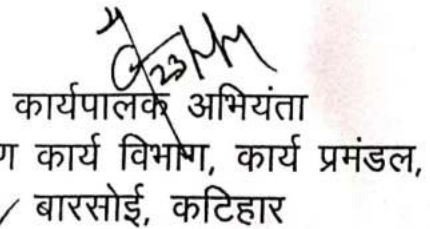 23/11/
कार्यपालक अभियंता
ण कार्य विभाग, कार्य प्रमंडल,
बारसोई, कटिहार